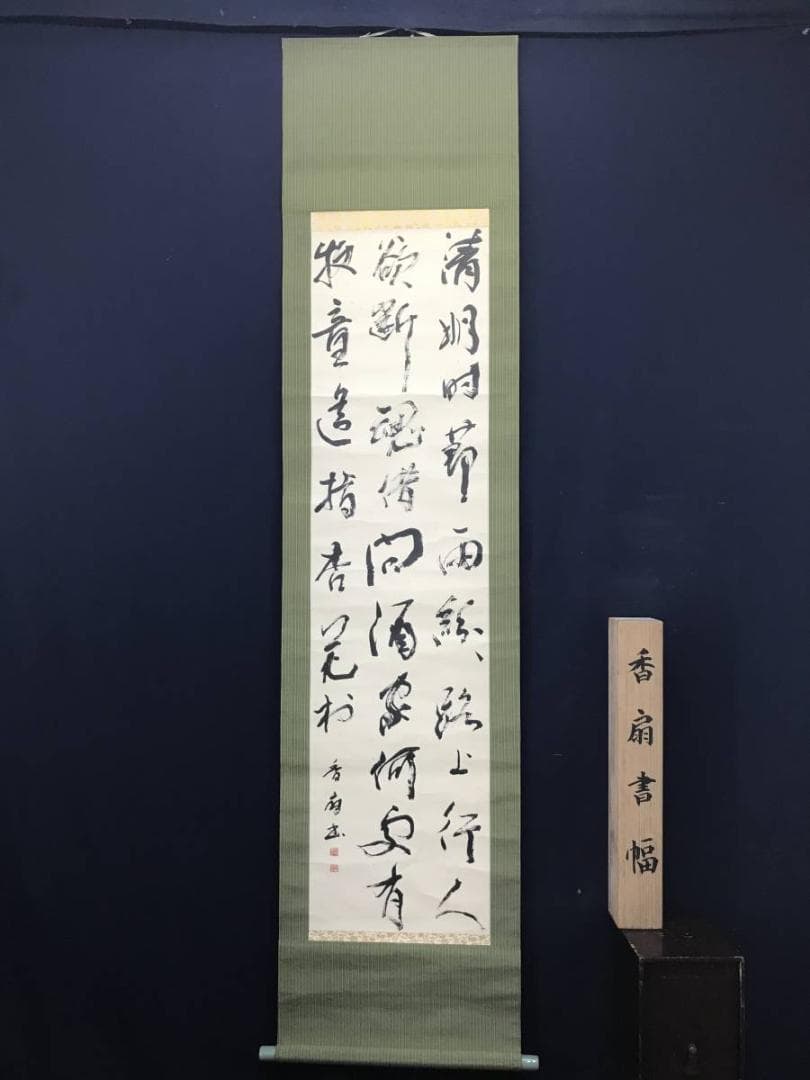 清明時節雨紛々路上行人
欲断魂借問酒家何処有
牧童遥指杏花村
香扇書
香扇書幅